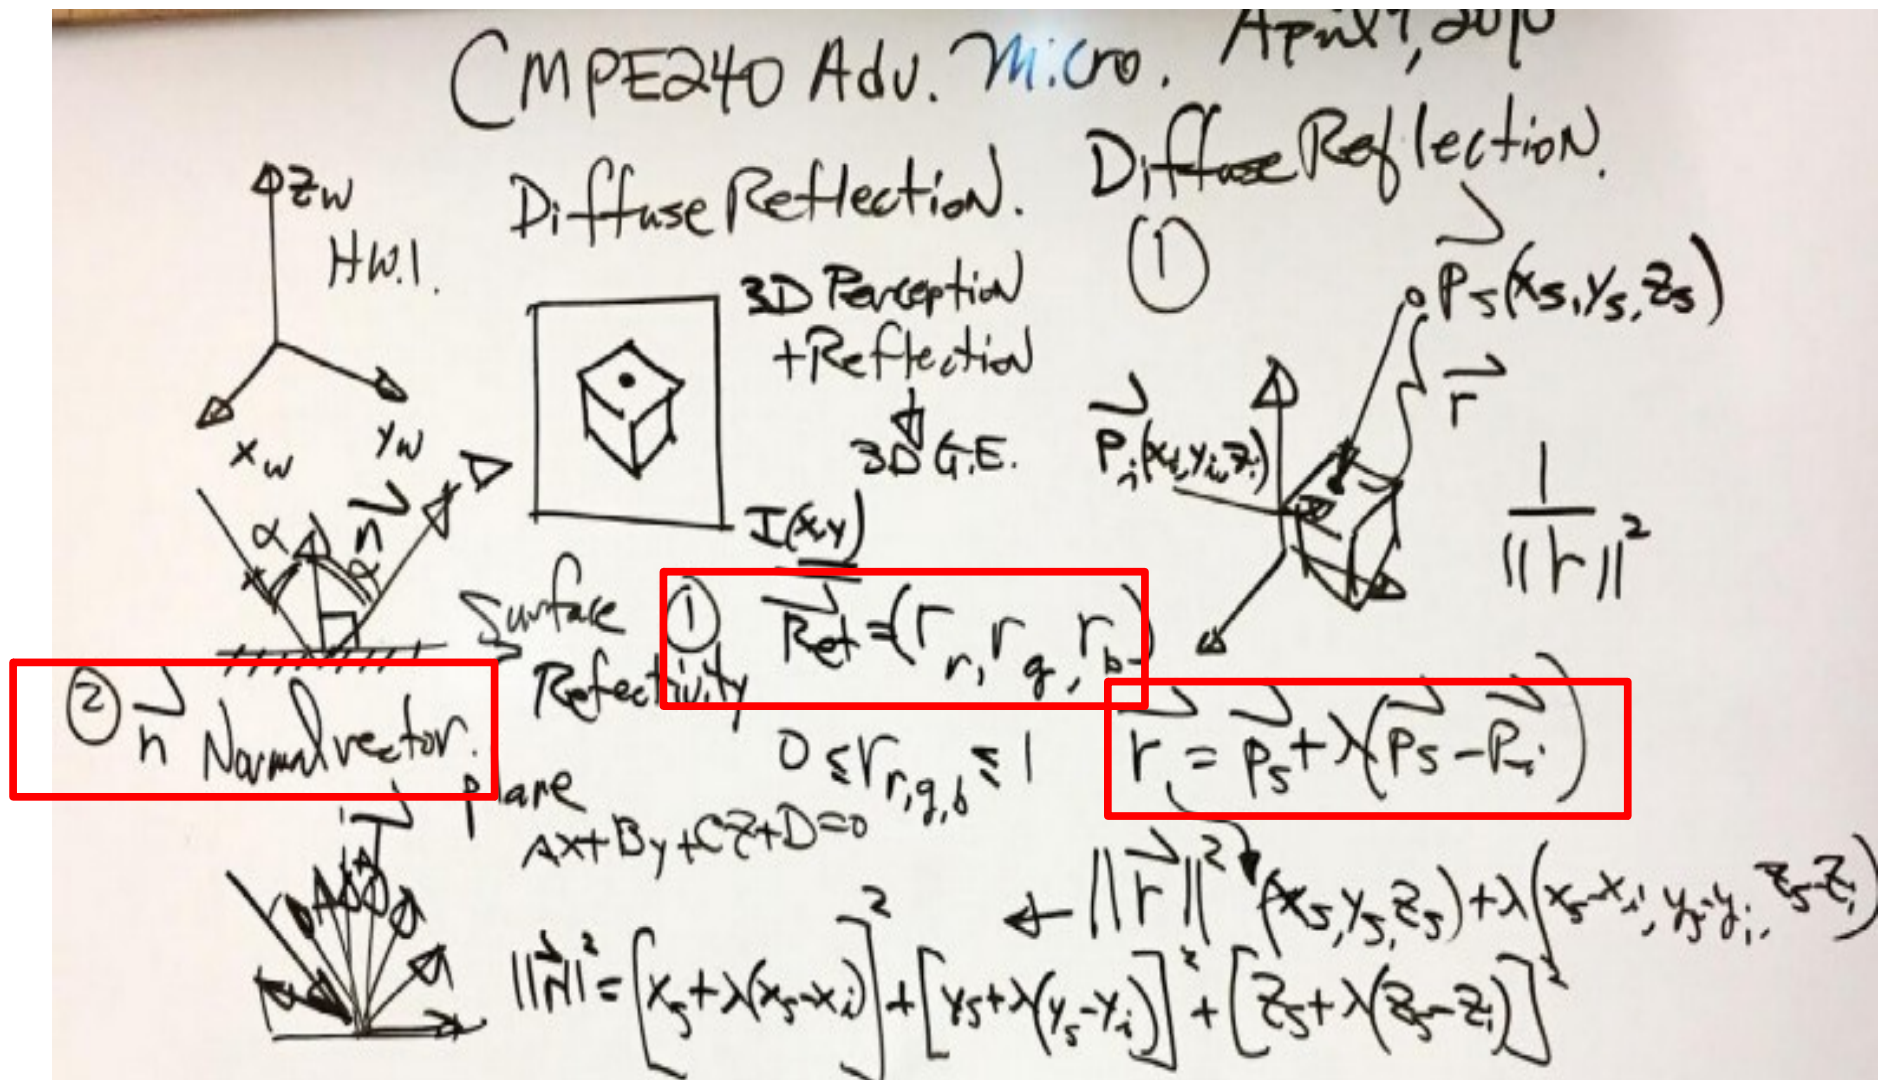 CMPE240 Adv. Micro. April
Diffuse Reflection.
Zw
HW.1.
xw
yw
3D Perception
+Reflection
3D G.E.
I(x,y)
α
n
Surface
Refectivity
① Ref=(r r, r g, r b)
0 ≤ r r,g,b ≤ 1
② n Normal vector.
Plane
Ax+By+Cz+D=0
Diffuse Reflection.
①
Ps(xs,ys,zs)
r
Pi(xi,yi,zi)
1/||r||²
r = Ps+λ(Ps-Pi)
||r||² (xs,ys,zs)+λ(xs-xi, ys-yi, zs-zi)
||r||²=[xs+λ(xs-xi)]²+[ys+λ(ys-yi)]²+[zs+λ(zs-zi)]²